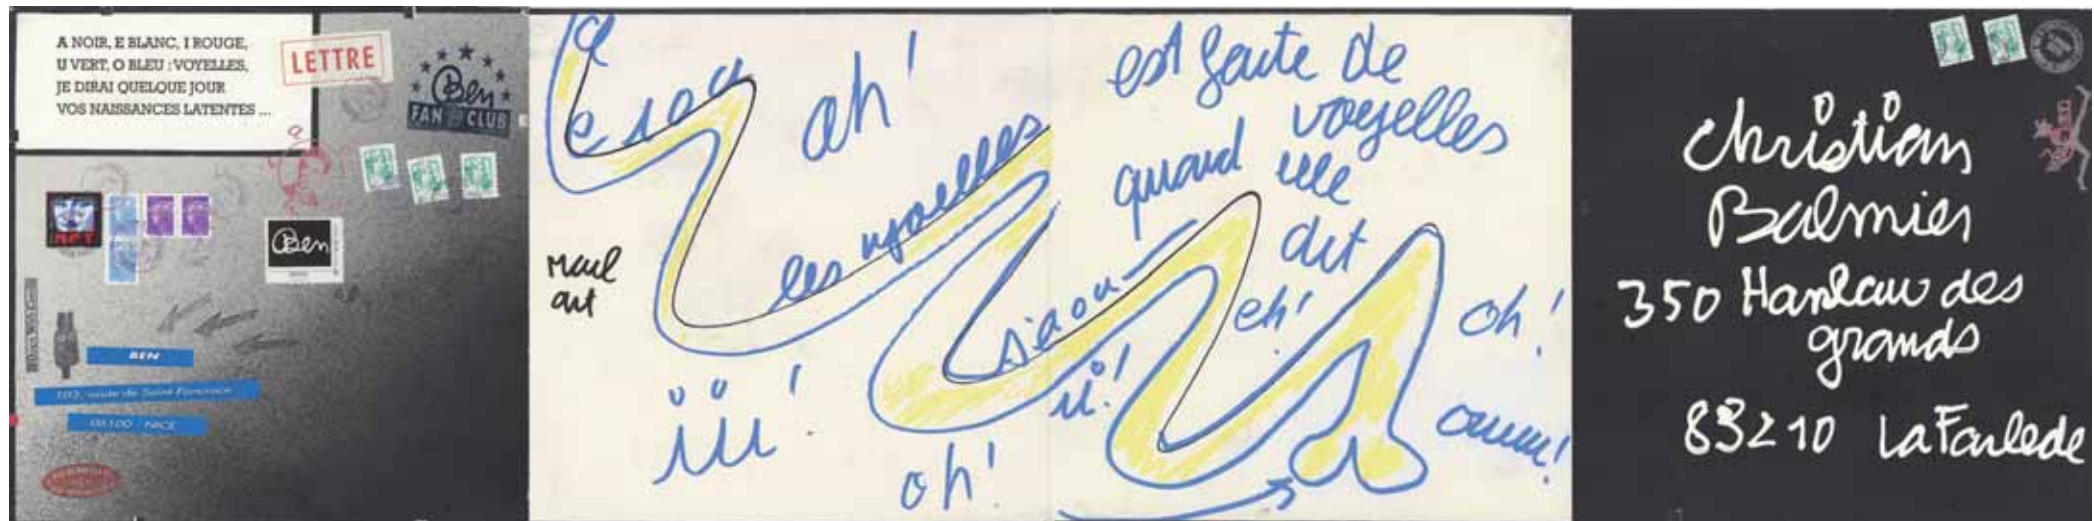 A NOIR, E BLANC, I ROUGE,
U VERT, O BLEU : VOYELLES,
JE DIRAI QUELQUE JOUR
VOS NAISSANCES LATENTES ...
LETTRE
Ben
FAN CLUB
Ben
BEN
103, route de Saint Pancrace
06100 - NICE
a
e i o u
ah!
les voyelles
Mail
art
iii!
oh!
est faute de
voyelles
quand elle
dit
eh!
oh!
ii!
ouuu!
Christian
Balmier
350 Hameau des
grands
83210 La Farlede